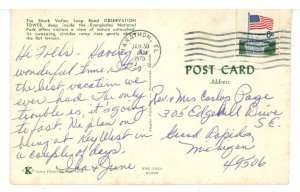 The Shark Valley Loop Road OBSERVATION
TOWER, deep inside the Everglades National
Park offers visitors a view of nature untouched.
Its sweeping, circular ramp view gently
the flat terrain.
MARATHON, FL
JAN 30
PM
1970
POST CARD
Address
Hi Folks – Having
wonderful time, it's
the best vacation we
ever had. The only
trouble is, it's going
to fast. We plan on
being at Key West in
a couple of days.
& June
Rev. & Mrs Carlos Page
305 Edgehill Drive
S.E.
Grand Rapids
Michigan
49506